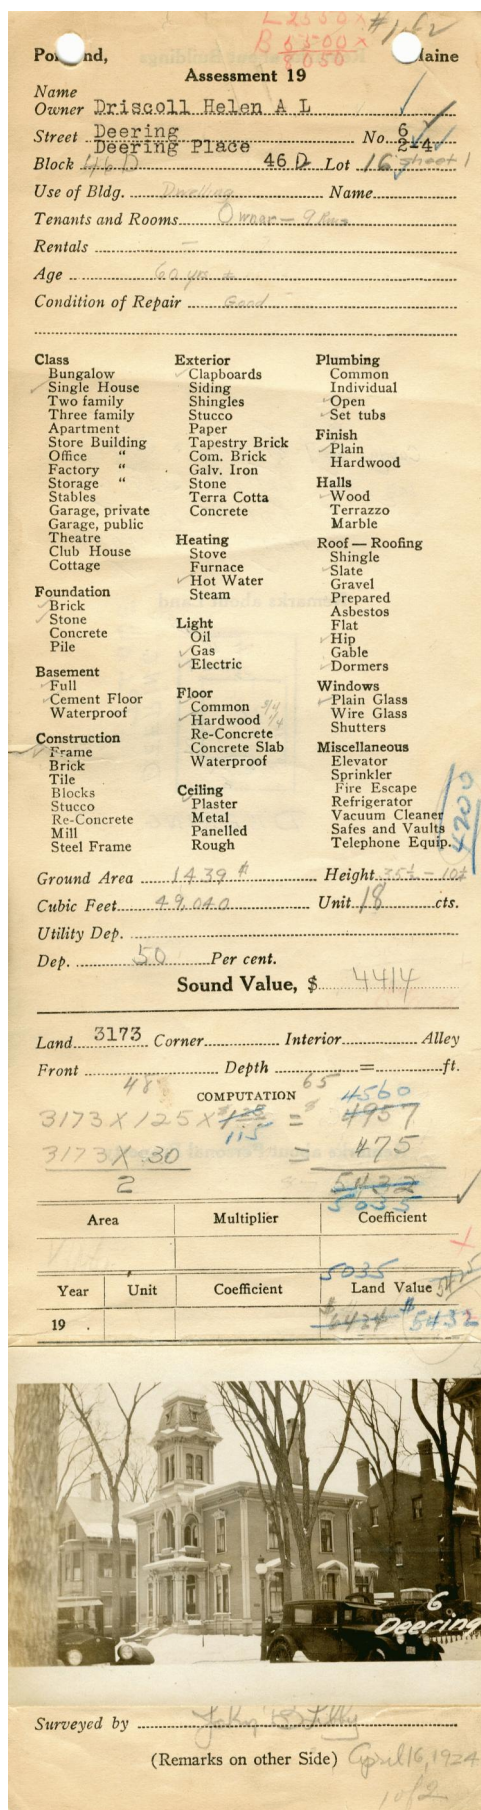 L 2550 x #1162
B 5500 x
8050
Portland, Maine
Assessment 19
Name
Owner Driscoll Helen A L
Street Deering No. 6
Deering Place 2-4
Block 46 D 46 D Lot 16 sheet 1
Use of Bldg. Dwelling Name
Tenants and Rooms Owner - 9 Rms
Rentals -
Age 60 yrs ±
Condition of Repair Good
Class
Bungalow
Single House
Two family
Three family
Apartment
Store Building
Office "
Factory "
Storage "
Stables
Garage, private
Garage, public
Theatre
Club House
Cottage
Foundation
Brick
Stone
Concrete
Pile
Basement
Full
Cement Floor
Waterproof
Construction
Frame
Brick
Tile
Blocks
Stucco
Re-Concrete
Mill
Steel Frame
Exterior
Clapboards
Siding
Shingles
Stucco
Paper
Tapestry Brick
Com. Brick
Galv. Iron
Stone
Terra Cotta
Concrete
Heating
Stove
Furnace
Hot Water
Steam
Light
Oil
Gas
Electric
Floor
Common 3/4
Hardwood 1/4
Re-Concrete
Concrete Slab
Waterproof
Ceiling
Plaster
Metal
Panelled
Rough
Plumbing
Common
Individual
Open
Set tubs
Finish
Plain
Hardwood
Halls
Wood
Terrazzo
Marble
Roof — Roofing
Shingle
Slate
Gravel
Prepared
Asbestos
Flat
Hip
Gable
Dormers
Windows
Plain Glass
Wire Glass
Shutters
Miscellaneous
Elevator
Sprinkler
Fire Escape
Refrigerator
Vacuum Cleaner
Safes and Vaults
Telephone Equip.
4200
Ground Area 1439 Height 35± - 10±
Cubic Feet 49,040 Unit 18 cts.
Utility Dep.
Dep. 50 Per cent.
Sound Value, $ 4414
Land 3173 Corner Interior Alley
Front Depth = ft.
48 65
COMPUTATION 4560
3173 X 125 X 125 = $ 4957
115
3173 X 30 = 475
2 5432
5035
Area Multiplier Coefficient
5035
Year Unit Coefficient Land Value 5425
19 . $ 6424 $ 5432
6
Deering
Surveyed by John B Libby
(Remarks on other Side) April 16, 1924
1 of 2